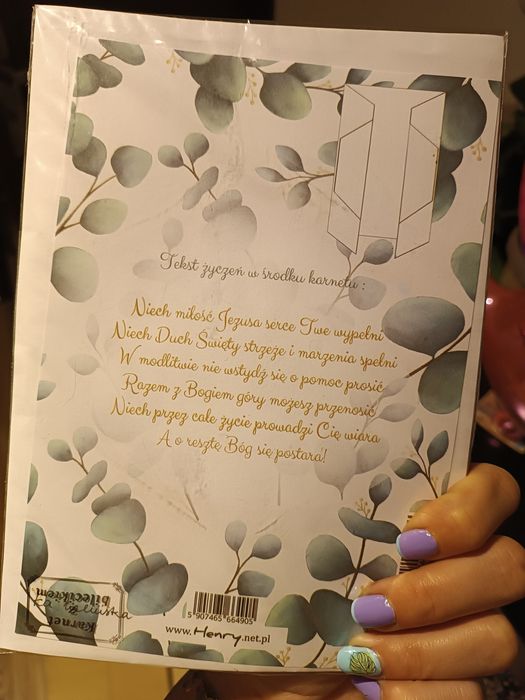 Tekst życzeń w środku karnetu :
Niech miłość Jezusa serce Twe wypełni
Niech Duch Święty strzeże i marzenia spełni
W modlitwie nie wstydź się o pomoc prosić
Razem z Bogiem góry możesz przenosić
Niech przez całe życie prowadzi Cię wiara
A o resztę Bóg się postara!
Karnet
z bilecikiem
5 907465 664905
www.Henry.net.pl